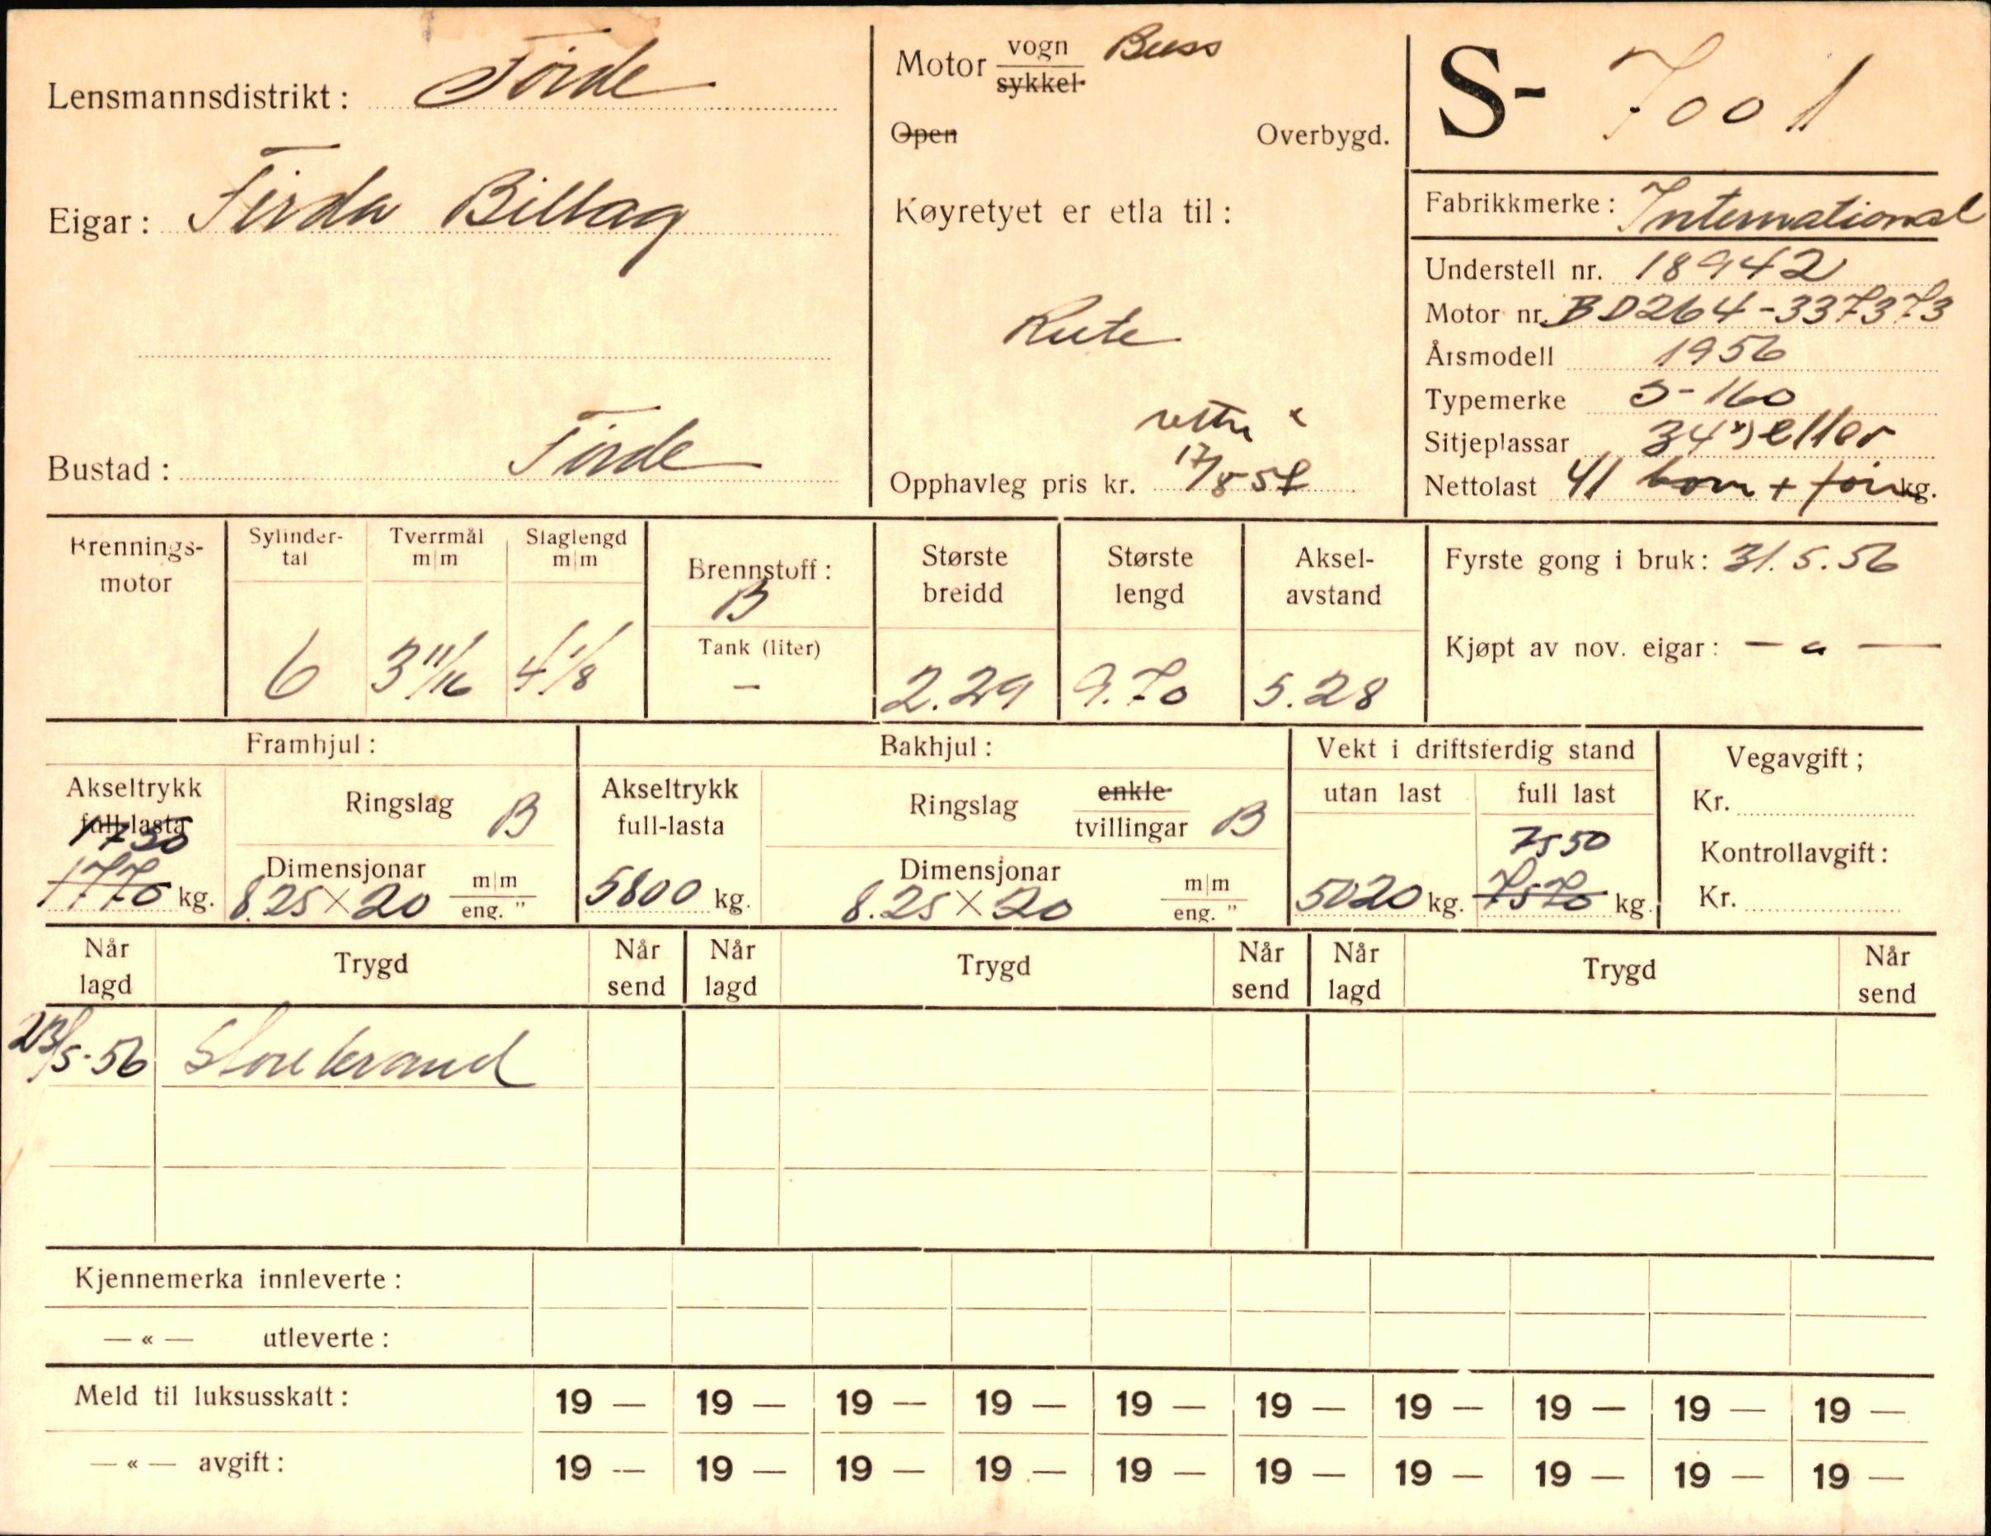 Lensmannsdistrikt: Førde
Eigar: Firda Billag
Bustad: Førde
Motor vogn Buss
sykkel
Open Overbygd.
Køyretyet er etla til:
Rute
Opphavleg pris kr. 17/8 57
S- 7001
Fabrikkmerke: International
Understell nr. 18942
Motor nr. BD264-337373
Årsmodell 1956
Typemerke S-160
Sitjeplassar 34 x) eller
Nettolast 41 born + før kg.
Brennings-motor
Sylinder-tal 6
Tverrmål m|m 3 11/16
Slaglengd m|m 4 1/8
Brennstoff: B
Tank (liter) —
Største breidd 2.29
Største lengd 9.70
Aksel-avstand 5.28
Fyrste gong i bruk: 31.5.56
Kjøpt av nov. eigar: — „ —
Framhjul:
Akseltrykk full-lasta 1750 1770 kg.
Ringslag B
Dimensjonar 8.25 × 20 m|m eng. "
Bakhjul:
Akseltrykk full-lasta 5800 kg.
Ringslag enkle tvillingar B
Dimensjonar 8.25 × 20 m|m eng. "
Vekt i driftsferdig stand
utan last 5020 kg.
full last 7550 7570 kg.
Vegavgift;
Kr.
Kontrollavgift:
Kr.
Når lagd Trygd Når send Når lagd Trygd Når send Når lagd Trygd Når send
23/5-56 Storebrand
Kjennemerka innleverte:
— « — utleverte:
Meld til luksusskatt: 19 — 19 — 19 — 19 — 19 — 19 — 19 — 19 — 19 — 19 —
— « — avgift: 19 — 19 — 19 — 19 — 19 — 19 — 19 — 19 — 19 — 19 —